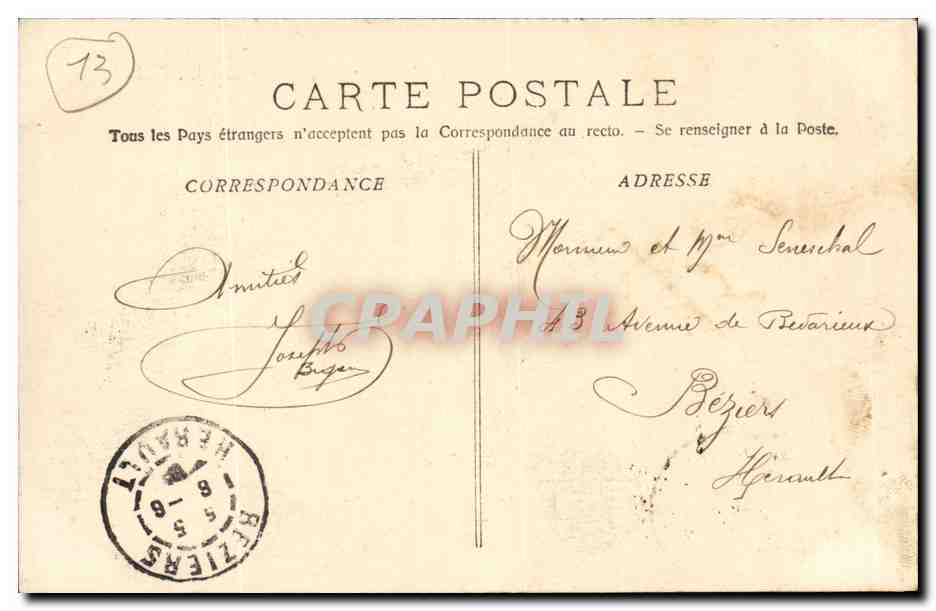 13
CARTE POSTALE
Tous les Pays étrangers n'acceptent pas la Correspondance au recto. - Se renseigner à la Poste.
CORRESPONDANCE
ADRESSE
Amitiés
Joseph
Monsieur et Mme Seneschal
43 Avenue de Bedarieux
Béziers
Hérault
CPAPHIL
BEZIERS
HERAULT